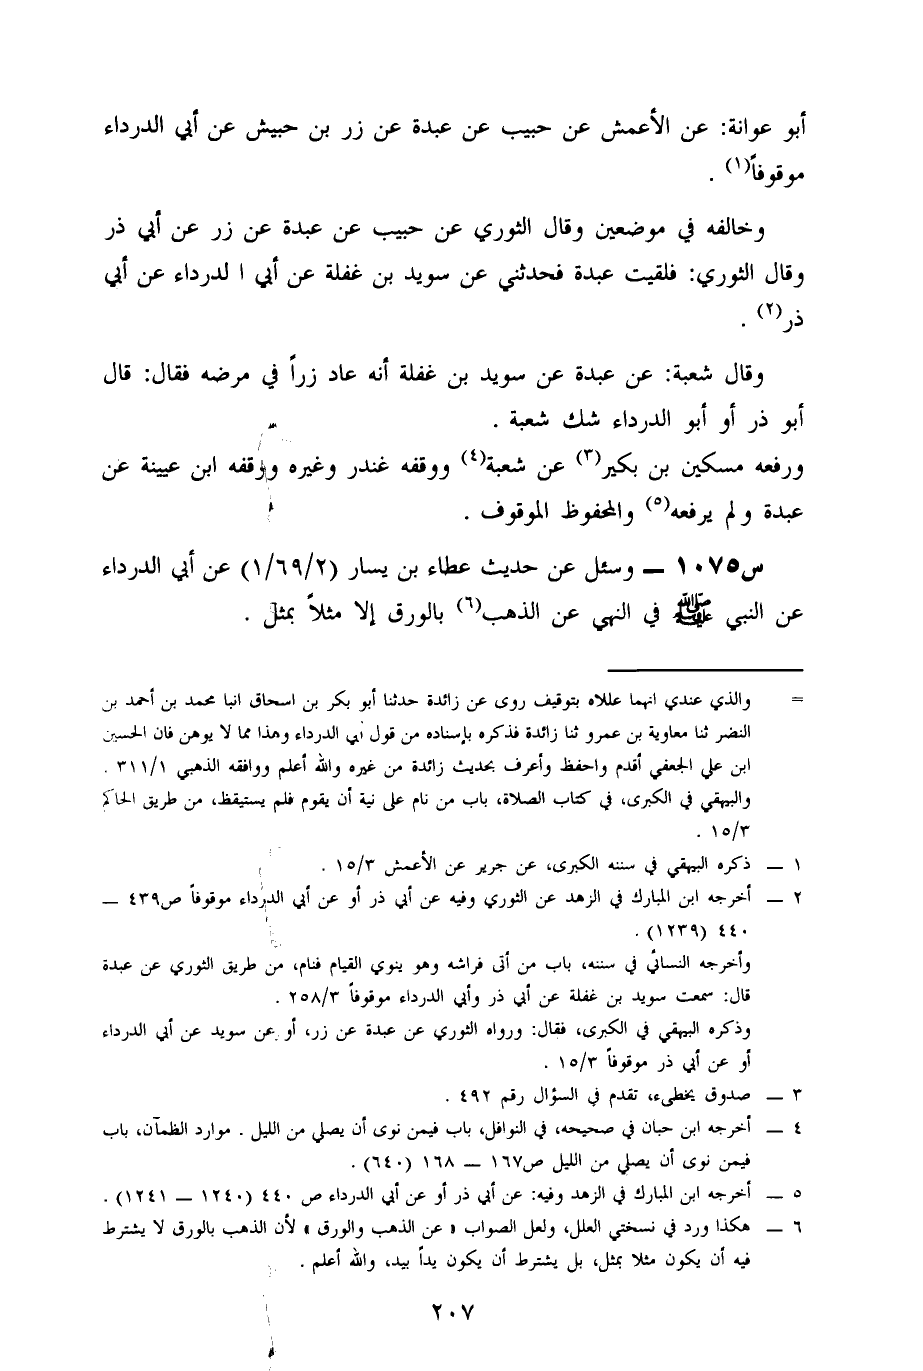 أبو عوانة: عن الأعمش عن حبيب عن عبدة عن زر بن حبيش عن أبي الدرداء
موقوفاً(١) .
وخالفه في موضعين وقال الثوري عن حبيب عن عبدة عن زر عن أبي ذر
وقال الثوري: فلقيت عبدة فحدثني عن سويد بن غفلة عن أبي ا لدرداء عن أبي
ذر(٢) .
وقال شعبة: عن عبدة عن سويد بن غفلة أنه عاد زراً في مرضه فقال: قال
أبو ذر أو أبو الدرداء شك شعبة .
ورفعه مسكين بن بكير(٣) عن شعبة(٤) ووقفه غندر وغيره ووقفه ابن عيينة عن
عبدة ولم يرفعه(٥) والمحفوظ الموقوف .
س١٠٧٥ ـ وسئل عن حديث عطاء بن يسار (١/٦٩/٢) عن أبي الدرداء
عن النبي ﷺ في النهي عن الذهب(٦) بالورق إلا مثلاً بمثل .
= والذي عندي انهما عللاه بتوقيف روى عن زائدة حدثنا أبو بكر بن اسحاق انبا محمد بن أحمد بن
النضر ثنا معاوية بن عمرو ثنا زائدة فذكره بإسناده من قول أبي الدرداء وهذا مما لا يوهن فان الحسين
ابن علي الجعفي أقدم واحفظ وأعرف بحديث زائدة من غيره والله أعلم ووافقه الذهبي ٣١١/١ .
والبيهقي في الكبرى، في كتاب الصلاة، باب من نام على نية أن يقوم فلم يستيقظ، من طريق الحاكم
١٥/٣ .
١ ـ ذكره البيهقي في سننه الكبرى، عن جرير عن الأعمش ١٥/٣ .
٢ ـ أخرجه ابن المبارك في الزهد عن الثوري وفيه عن أبي ذر أو عن أبي الدرداء موقوفاً ص٤٣٩ ـ
٤٤٠ (١٢٣٩) .
وأخرجه النسائي في سننه، باب من أتى فراشه وهو ينوي القيام فنام، من طريق الثوري عن عبدة
قال: سمعت سويد بن غفلة عن أبي ذر وأبي الدرداء موقوفاً ٢٥٨/٣ .
وذكره البيهقي في الكبرى، فقال: ورواه الثوري عن عبدة عن زر، أو عن سويد عن أبي الدرداء
أو عن أبي ذر موقوفاً ١٥/٣ .
٣ ـ صدوق يخطىء، تقدم في السؤال رقم ٤٩٢ .
٤ ـ أخرجه ابن حبان في صحيحه، في النوافل، باب فيمن نوى أن يصلي من الليل . موارد الظمآن، باب
فيمن نوى أن يصلي من الليل ص١٦٧ ـ ١٦٨ (٦٤٠) .
٥ ـ أخرجه ابن المبارك في الزهد وفيه: عن أبي ذر أو عن أبي الدرداء ص ٤٤٠ (١٢٤٠ ـ ١٢٤١) .
٦ ـ هكذا ورد في نسختي العلل، ولعل الصواب « عن الذهب والورق » لأن الذهب بالورق لا يشترط
فيه أن يكون مثلا بمثل، بل يشترط أن يكون يداً بيد، والله أعلم .
٢٠٧